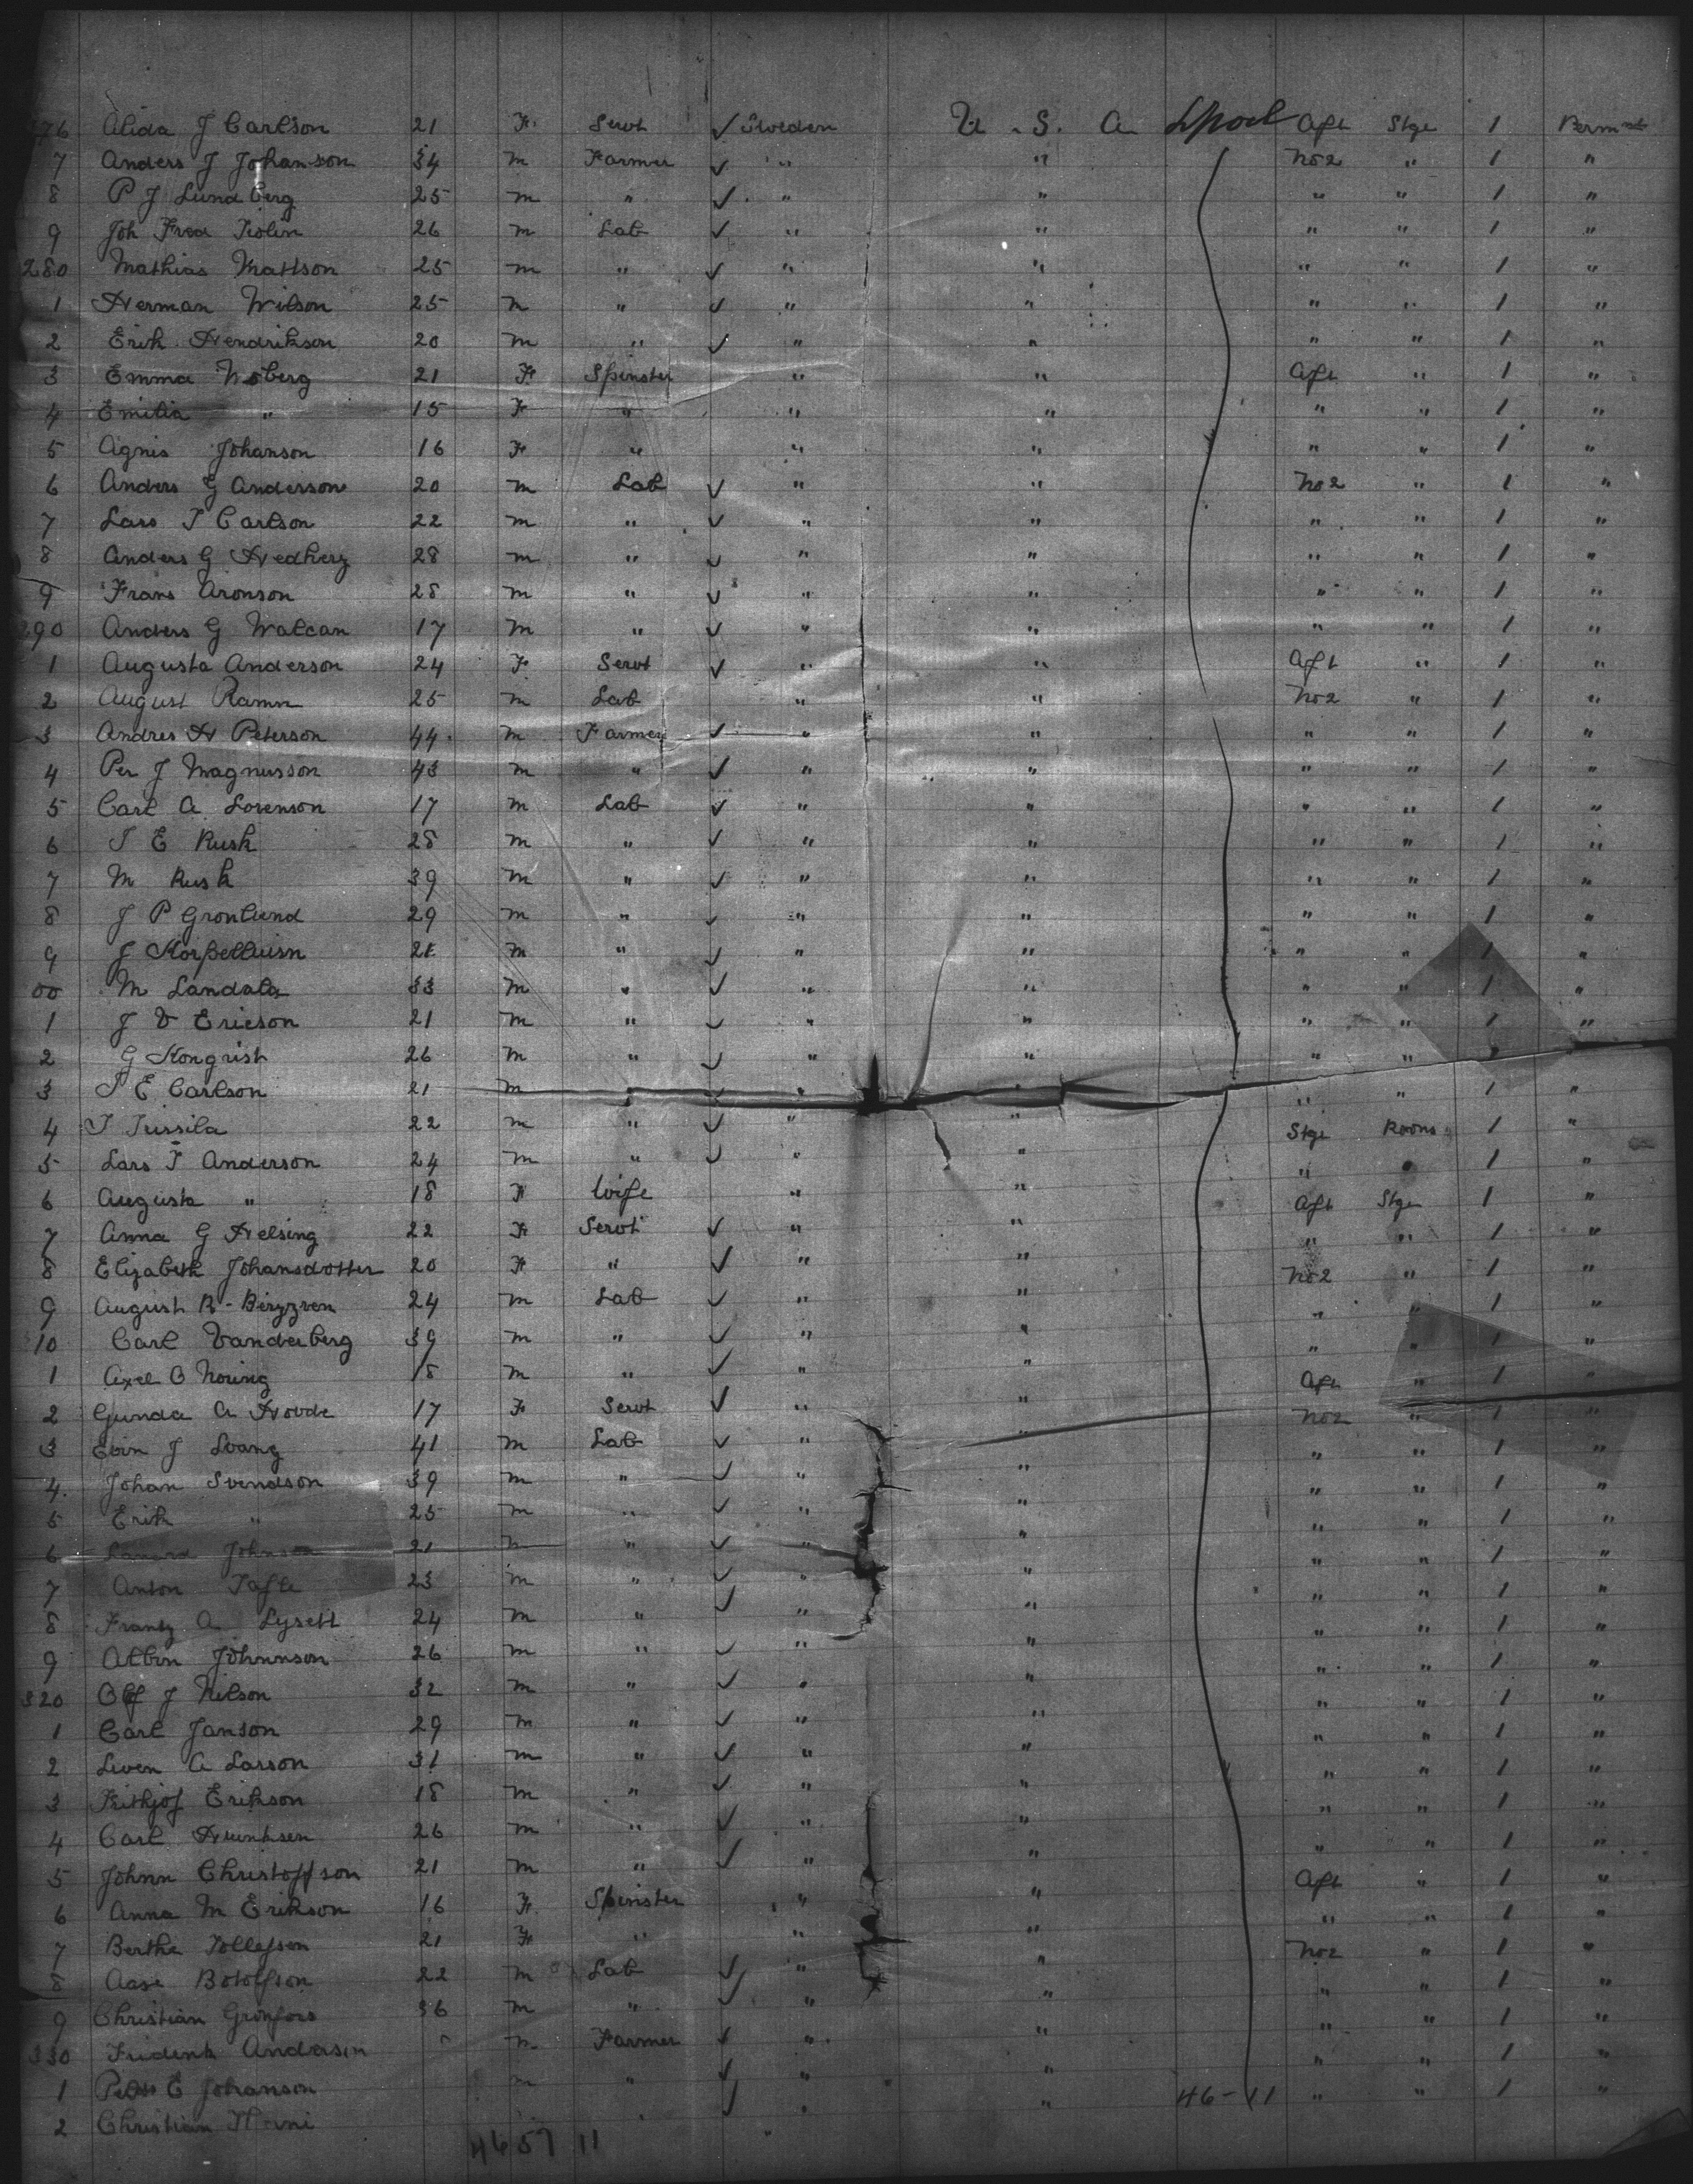 276 Alida J Carlson 21 F. Servt ✓ Sweden U.S.A Lpool Aft Stge 1 Permnt
7 Anders J Johanson 34 m Farmer ✓ " " No 2 " 1 "
8 P J Lundberg 25 m " ✓ " " " " 1 "
9 Joh Fred 26 m Lab ✓ " " " " 1 "
280 Mathias Mattson 25 m " ✓ " " " " 1 "
1 Herman Wilson 25 m " ✓ " " " " 1 "
2 Erik Hendrikson 20 m " ✓ " " " " 1 "
3 Emma 21 F Spinster " " Aft " 1 "
4 Emilia " 15 F " " " " " 1 "
5 Agnis Johanson 16 F " " " " " 1 "
6 Anders G Anderson 20 m Lab ✓ " " No 2 " 1 "
7 Lars T Carlson 22 m " ✓ " " " " 1 "
8 Anders G Hedherz 28 m " ✓ " " " " 1 "
9 Frans Aronson 28 m " ✓ " " " " 1 "
290 Anders G Walcan 17 m " ✓ " " " " 1 "
1 Augusta Anderson 24 F Servt ✓ " " Aft " 1 "
2 August Ramn 25 m Lab " " No 2 " 1 "
3 Andres H Peterson 44 m Farmer ✓ " " " " 1 "
4 Per J Magnusson 43 m " ✓ " " " " 1 "
5 Carl A Lorenson 17 m Lab ✓ " " " " 1 "
6 T E Rusk 28 m " ✓ " " " " 1 "
7 M Rusk 39 m " ✓ " " " " 1 "
8 J P Gronlund 29 m " ✓ " " " " 1 "
9 J m " ✓ " " " " 1 "
00 M Landala 33 m " ✓ " " " " 1 "
1 J V Ericson 21 m " ✓ " " " " 1 "
2 G Konqvist 26 m " ✓ " " " "
3 T E Carlson 21 m " ✓ " " " " 1 "
4 T 22 m " ✓ " " Stge Rooms 1 "
5 Lars T Anderson 24 m " ✓ " " " " 1 "
6 Augusta " 18 F Wife " " Aft Stge 1 "
7 Anna G Helsing 22 F Servt ✓ " " " " 1 "
8 Elizabeth Johansdotter 20 F " ✓ " " No 2 " 1 "
9 August B - 24 m Lab ✓ " " " " 1 "
310 Carl Vanderberg 39 m " ✓ " " " " 1 "
1 Axel O Noring 18 m " ✓ " " Aft " 1 "
2 Gunda A Hovde 17 F Servt ✓ " " No 2 " 1 "
3 J Svang 41 m Lab ✓ " " " " 1 "
4 Johan Svendson 39 m " ✓ " " " " 1 "
5 Erik " 25 m " ✓ " " " " 1 "
6 Johnson 21 m " ✓ " " " " 1 "
7 Anton 23 m " ✓ " " " " 1 "
8 Frantz A Lysett 24 m " ✓ " " " " 1 "
9 Albin Johnnson 26 m " ✓ " " " " 1 "
320 Olf J Nilson 32 m " ✓ " " " " 1 "
1 Carl Janson 29 m " ✓ " " " " 1 "
2 Swen A Larson 31 m " ✓ " " " " 1 "
3 Frithjof Erikson 18 m " ✓ " " " " 1 "
4 Carl 26 m " ✓ " " " " 1 "
5 Johnn Christoffson 21 m " ✓ " " Aft " 1 "
6 Anna M Erikson 16 F Spinster " " " " 1 "
7 Bertha Tollefson 21 F " " " No 2 " 1 "
8 Aase Botolfson 22 m Lab ✓ " " " " 1 "
9 Christian Gronfors 36 m " ✓ " " " " 1 "
330 Fridenk Anderson m Farmer ✓ " " " " 1 "
1 E Johanson m " ✓ " " " " 1 "
2 Christian " ✓ " " 46-11
4657 11